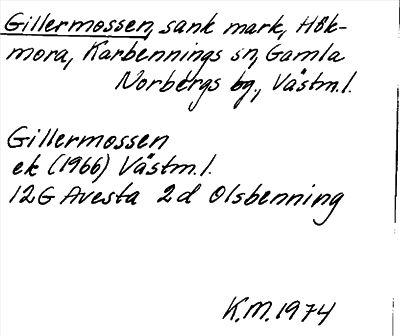 Gillermossen, sank mark, Hök-
mora, Karbennings sn, Gamla
Norbergs bg., Västm.l.
Gillermossen
ek (1966) Västm.l.
12G Avesta 2d Olsbenning
K.M. 1974